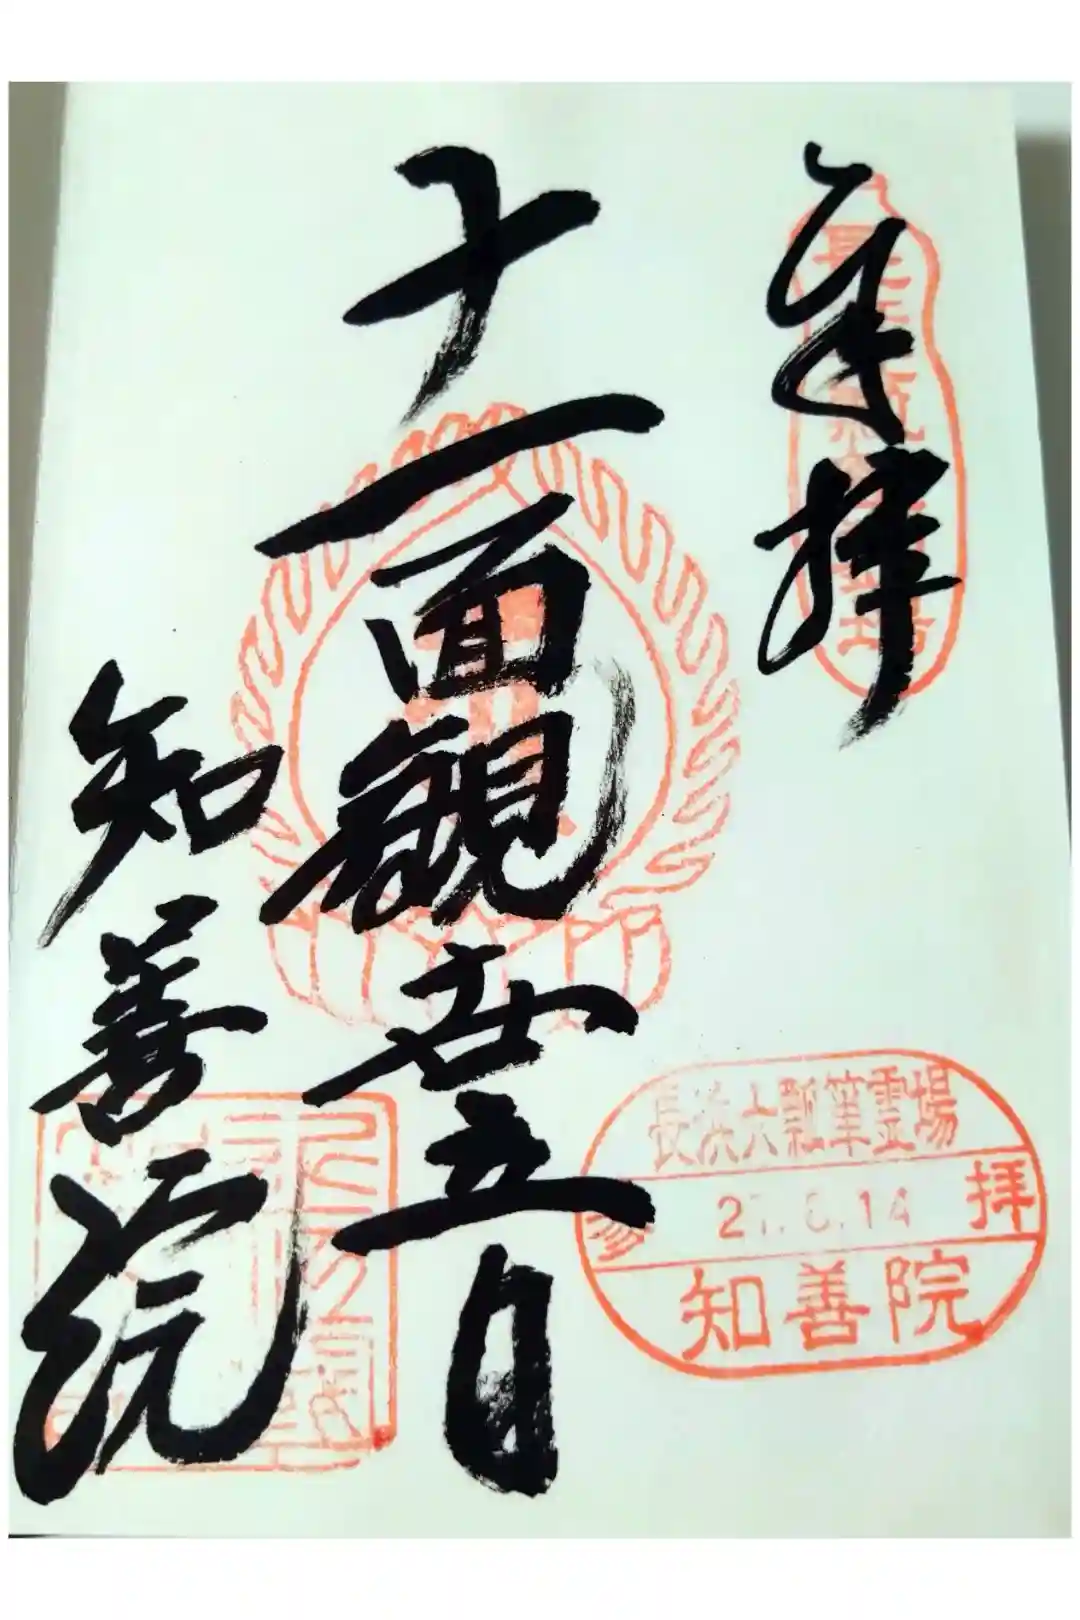 奉拝
十一面観世音
知善院
長浜六瓢箪霊場
参拝
14
知善院